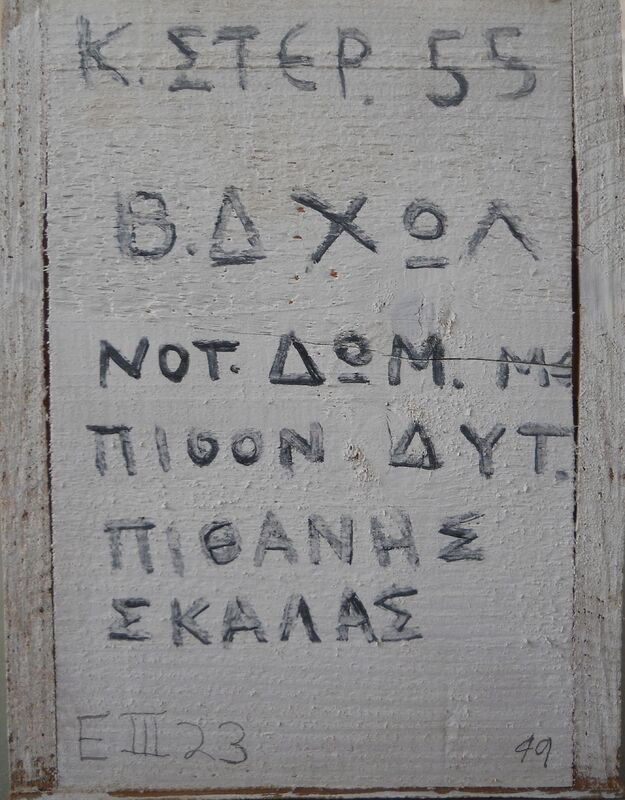 Κ. ΣΤΕΡ. 55
Β.Δ ΧΩΛ
ΝΟΤ. ΔΩΜ.
ΠΙΘΟΝ ΔΥΤ.
ΠΙΘΑΝΗΣ
ΣΚΑΛΑΣ
E III 23
49